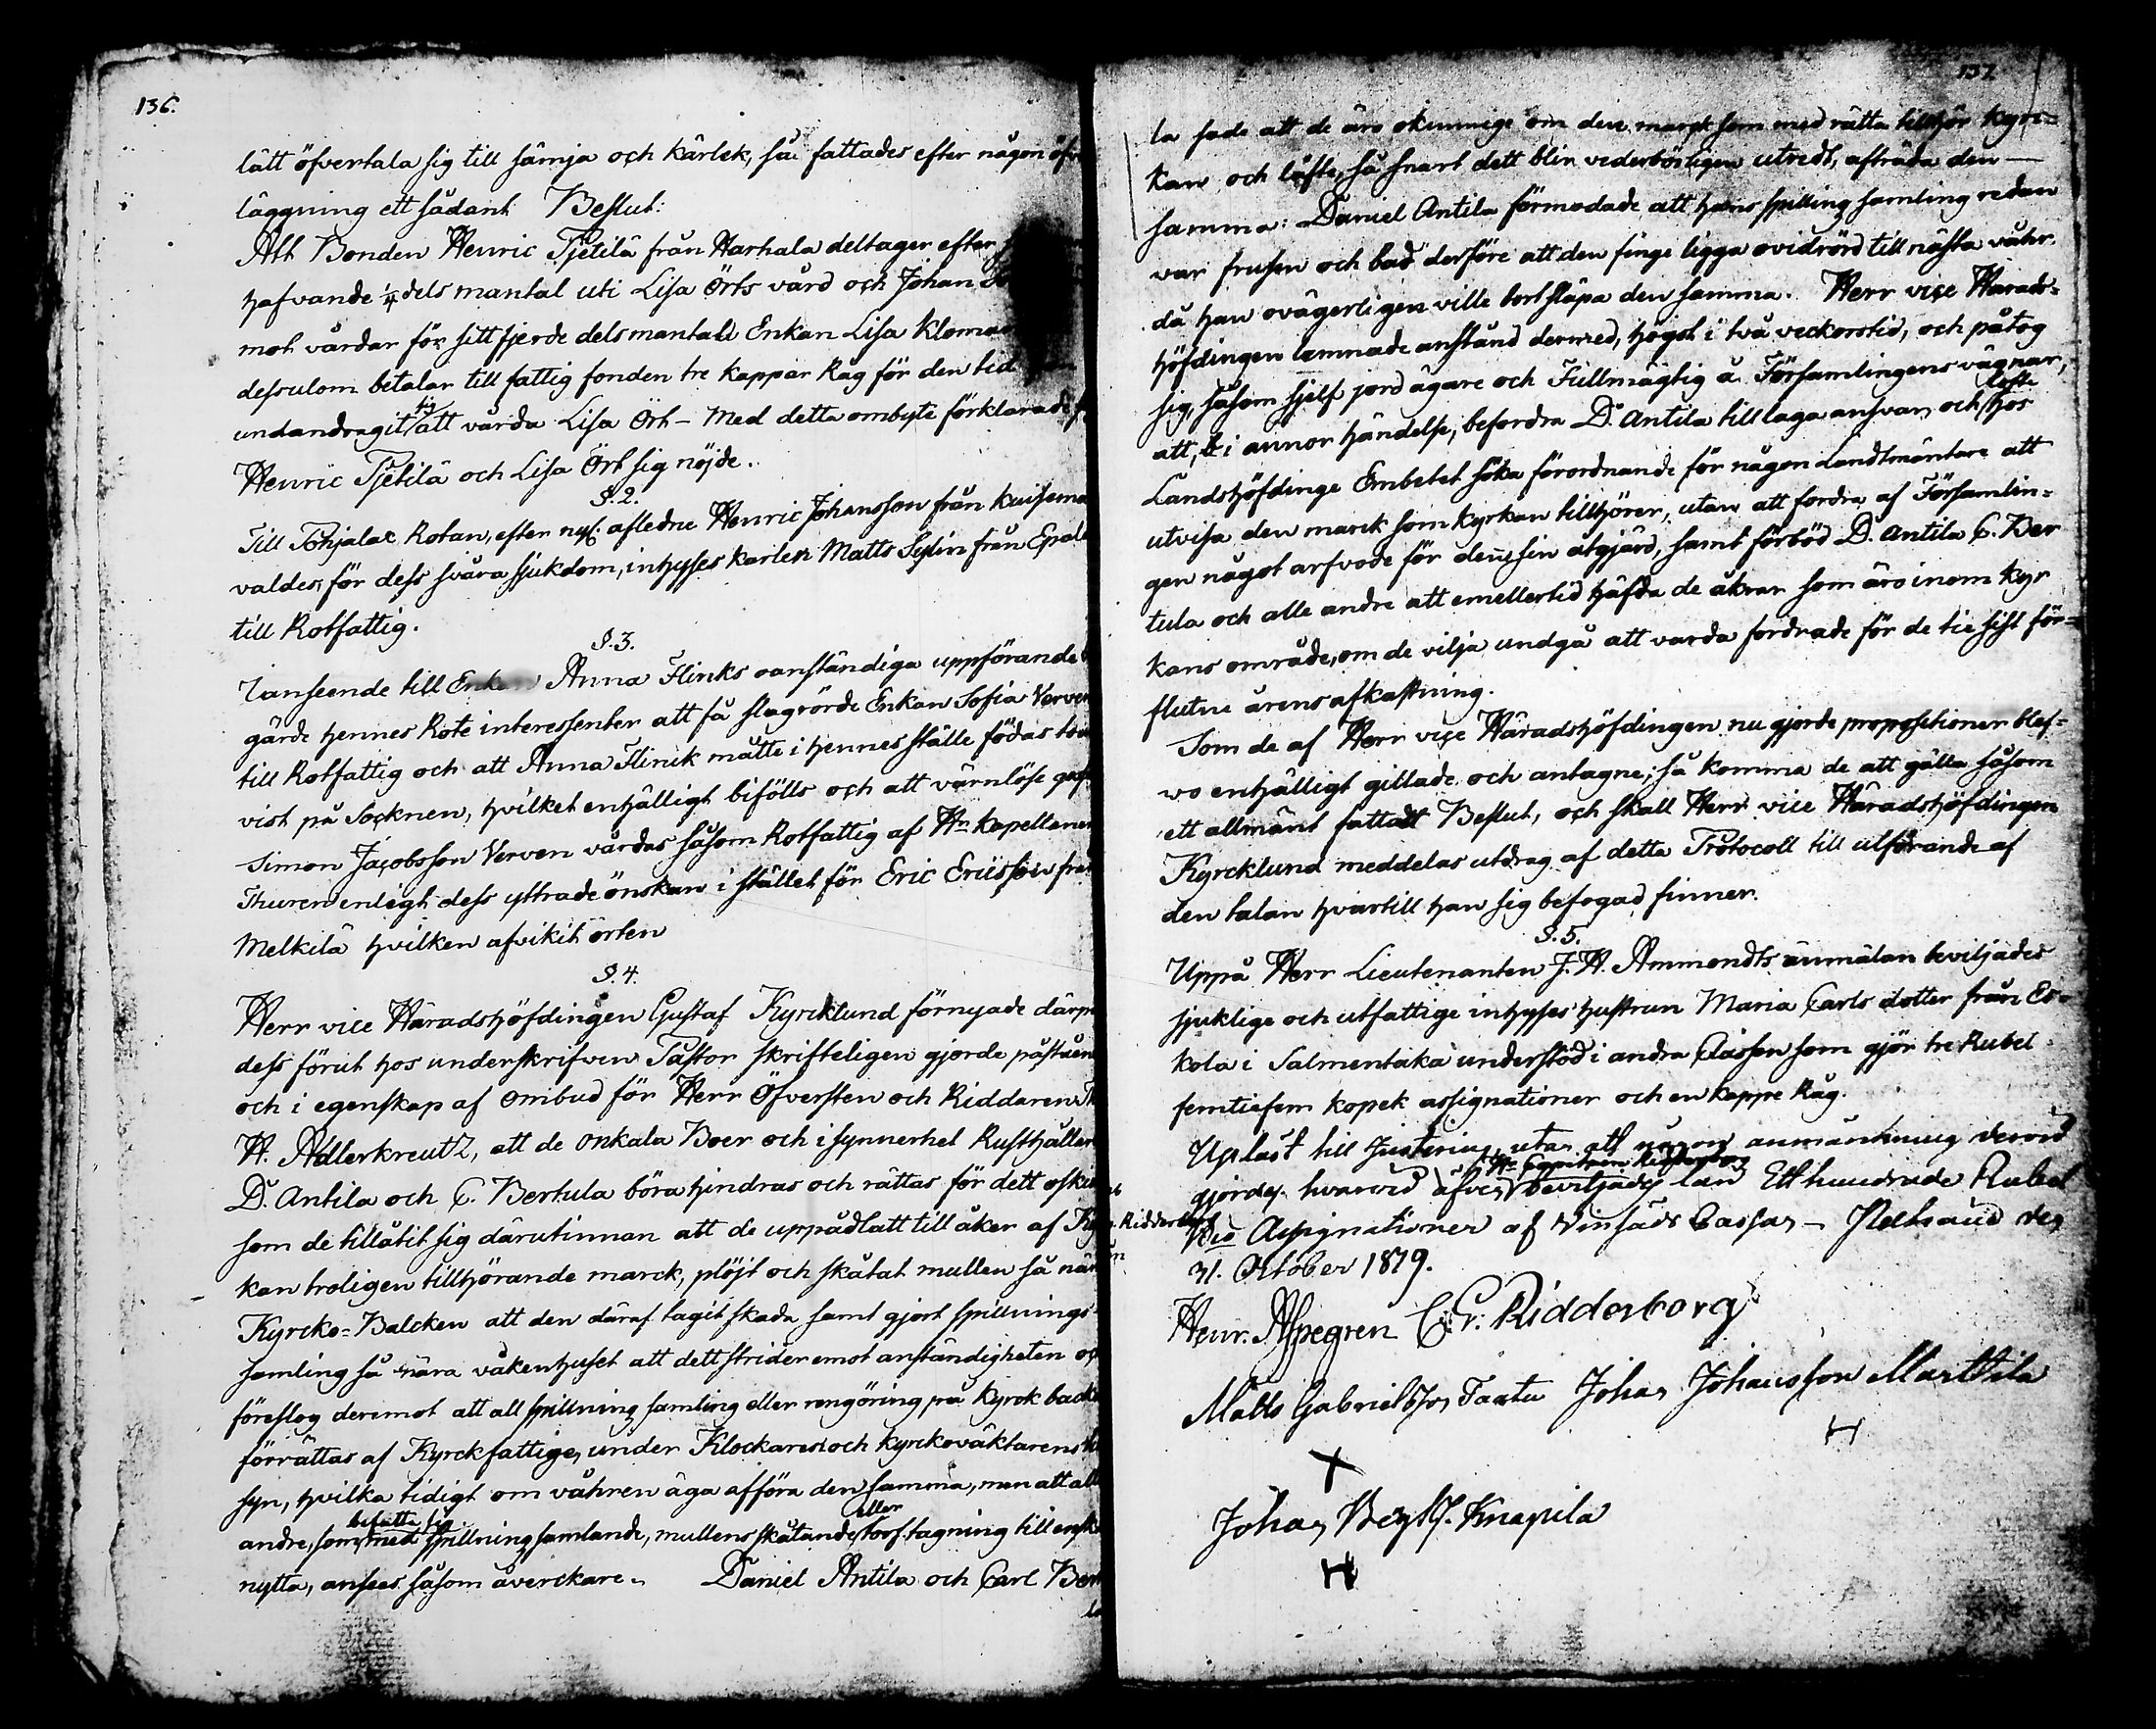 136.
lått öfvertala sig till sämja och kärlek, så fattades efter någon öfv
läggning ett sådant Beslut:
Att Bonden Henric Pjetilä från Harhala deltager efter
hafvande 1/4 dels mantal uti Lisa Örts vård och Johan
mot vårdar för sitt fjerde dels mantal Enkan Lisa
dessutom betalar till fattig fonden tre kappar Råg för den tid
undandragit sig att vårda Lisa Ört - Med detta ombyte förklarade
Henric Pjetilä och Lisa Ört sig nöjde.
§. 2.
Till Pohjalax Rotan, efter nyl. afledne Henric Johansson från Kuisema
valdes, för dess svåra sjukdom, inhyses karlen Matts Sylvin från Epaal
till Rotfattig.
§. 3.
I anseende till Enkan Anna Flinks oanständiga uppförande
gärde hennes Rote interessenter att få slagrörde Enkan Sofia Verven
till Rotfattig och att Anna Flinck måtte i hennes ställe födas
vist på Socknen, hvilket enhälligt bifölls och att värnlöse
Simon Jacobsson Verven vårdas såsom Rotfattig af Hn Kapellanen
Thuren enligt dess yttrade önskan i stället för Eric Ericsson från
Melkilä hvilken afvikit orten
§. 4.
Herr vice Häradshöfdingen Gustaf Kyrcklund förnyade därpå
dess förut hos underskrifven Pastor skrifteligen gjorde påståen
och i egenskap af ombud för Herr Öfversten och Riddaren
H. Adlerkreutz, att de Onkala Boer och i synnerhet Rusthållar
D. Antila och C. Bertula böra hindras och rättas för dett
som de tillåtit sig därutinnan att de uppådlatt till åker af Kyr
kan troligen tillhörande marck, plöjt och skåtat mullen så när
Kyrcko-Balcken att den däraf tagit skada samt gjort spillnings-
samling så nära våkenhuset att dett strider emot anständigheten och
föreslog deremot att all spillning samling eller rengöring på Kyrck backen
förrättas af Kyrckfattige, under Klockaren och Kyrckoväktarens
syn, hvilka tidigt om våhren äga afföra den samma, men att alla
andre, som befatta sig med spillning samlande, mullens skåtande eller torf tagning till ensk
nytta, anses såsom åverckare. Daniel Antila och Carl Bertu
la
137.
la sade att de äro okunnige om den marck som med rätta tillhör Kyrc-
kan och löfte, så snart dett blir vederbörligen utredt, afträda den
samma: Daniel Antila förmodade att hans spilling samling redan
var frusen och bad derföre att den finge ligga ovidrörd till nästa våhr,
då han ovägerligen ville bortsläpa den samma. Herr vice Härads-
höfdingen lemnade anstånd dermed, högst i två veckors tid, och påtog
sig, såsom sjelf jord ägare och Fullmägtig å Församlingens vägnar,
att, i annor händelse, befordra D. Antila till laga ansvar, och löfte hos
Landshöfdinge Embetet söka förordnande för någon Landtmäntare att
utvisa den marck som kyrkan tillhörer, utan att fordra af Församlin-
gen något arfvode för denne sin åtgjärd, samt förböd D. Antila C. Ber
tula och alle andre att emellertid häfda de åkrar som äro inom Kyr
kans område, om de vilja undgå att varda fordrade för de tie sist för-
flutne årens afkastning.
Som de af Herr vice Häradshöfdingen nu gjorde propositioner blef-
vo enhälligt gillade och antagne; så komma de att gälla såsom
ett allmänt fattadt Beslut, och skall Herr vice Häradshöfdingen
Kyrcklund meddelas utdrag af detta Protocoll till utförande af
den talan hvartill han sig befogad finner.
§. 5.
Uppå Herr Lieutenanten J. H. Ammondts anmälan beviljades
sjuklige och utfattige inhyses hustrun Maria Carls dotter från Es-
kola i Salmentaka understöd i andra Classen som gjör tre Rubel
femtiefem kopek assignationer och en kappe Råg.
Uplast till Justering, utan att någon anmärkning derved
gjordes. hvarvid äfven Hr Capitain Ridderborg beviljades lån Ett hundrade Rubel
Bco Assignationer af Vinsäds Cassan - Pelhaud den
31. October 1819.
Henr. Aspegren C. G. Ridderborg
Matts Gabrielsson Taatu Johan Johansson Marttila
Johan Knapila